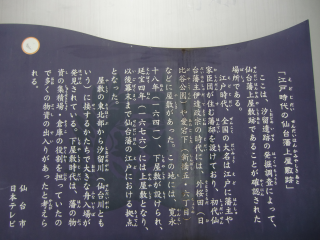 「江戸時代の仙台藩上屋敷跡」
ここは、汐留遺跡の発掘調査によって、
仙台藩上屋敷跡であることが確認された
場所である。
江戸時代、全国の大名は江戸に藩主や
家臣団が住む藩邸を設けており、初代仙
台藩主伊達政宗の時代には外桜田（日
比谷公園）が愛宕下、新橋
などに屋敷があった。この地には、寛永
十八年（一六四一）、下屋敷が設けられ、
延宝四年（一六七六）には上屋敷となり、
以後幕末まで仙台藩の江戸における拠点
となった。
屋敷の東北部から汐留川（新橋川とも
いう）に接するかたちで大きな舟入場が
発見されている。下屋敷時代は、藩の物
資の集積場・倉庫の役割を担っていたの
で多くの物資の出入りがあったと考えら
れる。
仙台市
日本テレビ